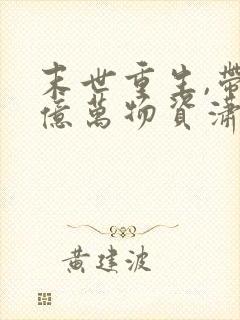 末世重生,帶
億萬物資瀟
黃建波